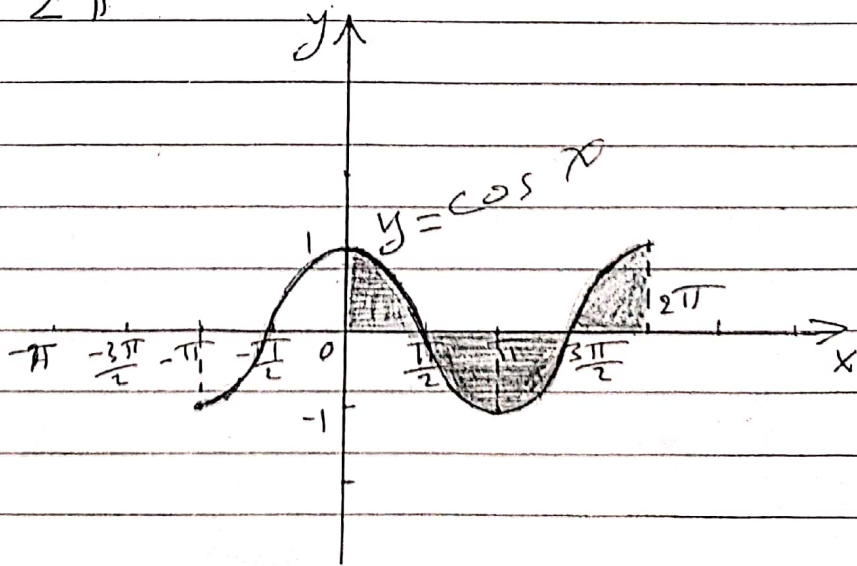 2 π
y
y = cos x
1
2π
-2π -3π/2 -π -π/2 0 π/2 π 3π/2 x
-1